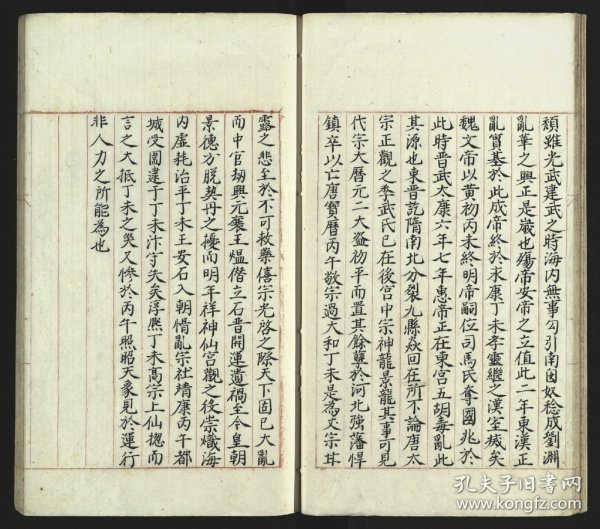 頹雖光武建武之時海內無事勾引南匈奴稔成劉淵
亂華之興正是歲也殤帝安帝之立值此二年東漢正
亂實基於此成帝終於永康丁未孝靈繼之漢室滅矣
魏文帝以黃初丙未終明帝嗣位司馬氏奪國兆於
此時晉武太康六年七年惠帝正在東宮五胡毒亂此
其源也東晉訖隋南北分裂九縣飆回在所不論唐太
宗正觀之季武氏已在後宮中宗神龍景龍其事可見
代宗大曆元二大盜初平而置其餘孽於河北強藩悍
鎮卒以亡唐寶曆丙午敬宗遇大和丁未是為文宗耳
露之悲至於不可救藥僖宗光啓之際天下固已大亂
而中官劫興元襄王熅僭立石晉開運遺禍至今皇朝
景德方脫契丹之擾而明年祥神仙宮觀之役崇熾海
內虛耗治平丁未王安石入朝愲亂宗社靖康丙午都
城受圍逮于丁未汴字失矣淳熙丁未高宗上仙摠而
言之大抵丁未之災又慘於丙午照昭天象見於運行
非人力之所能為也
孔夫子旧書网
kongfz.com